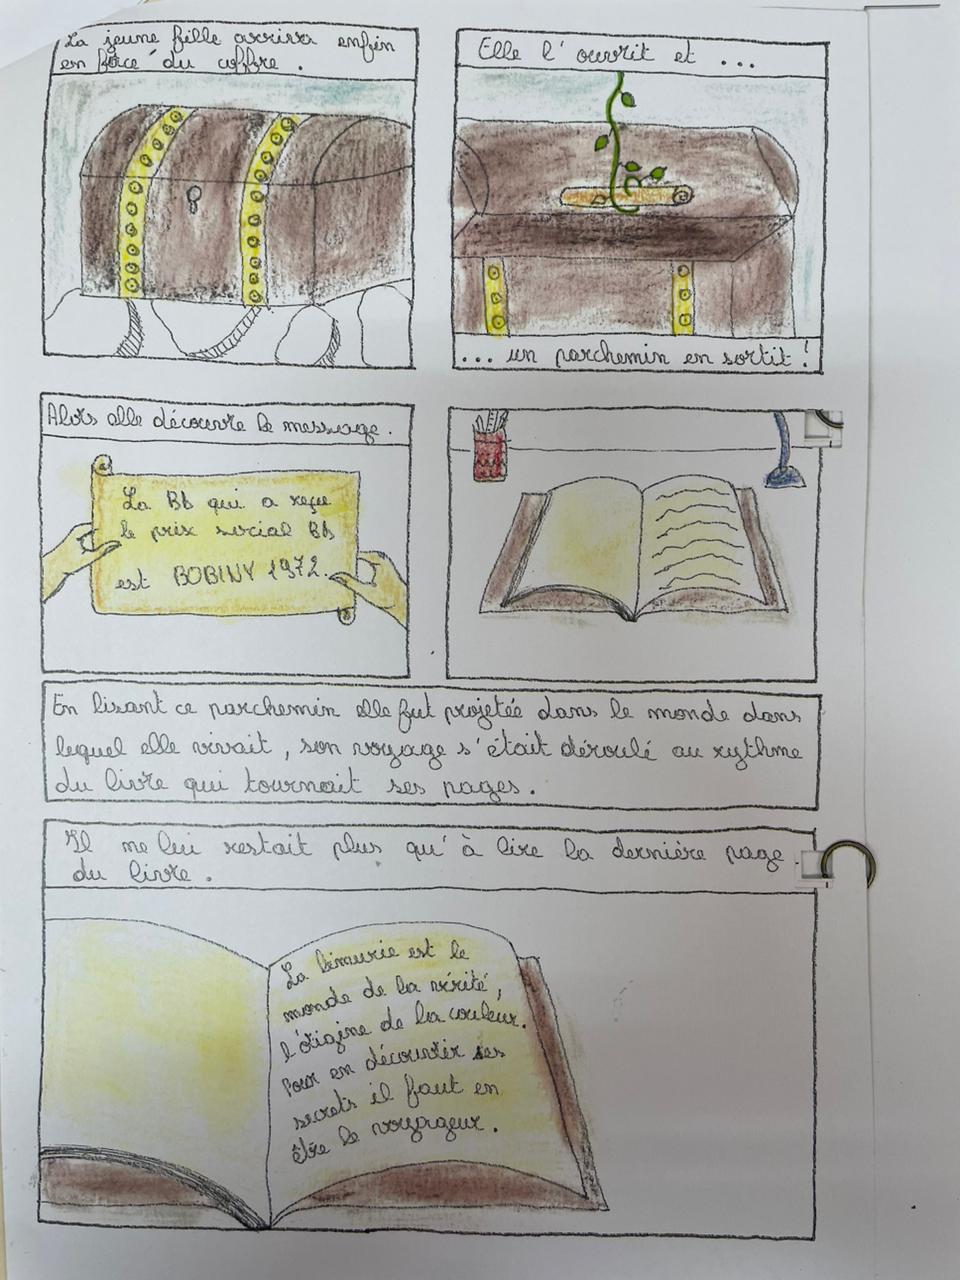 La jeune fille arriva enfin
en face du coffre.
Elle l'ouvrit et ...
... un parchemin en sortit !
Alors elle découvre le message.
La Bb qui a reçue
le prix social Bb
est BOBINY 1972.
En lisant ce parchemin elle fut projetée dans le monde dans
lequel elle vivait, son voyage s'était déroulé au rythme
du livre qui tournait ses pages.
Il ne lui restait plus qu'à lire la dernière page
du livre.
La limurie est le
monde de la vérité,
l'origine de la couleur.
Pour en découvrir ses
secrets il faut en
être le voyageur.